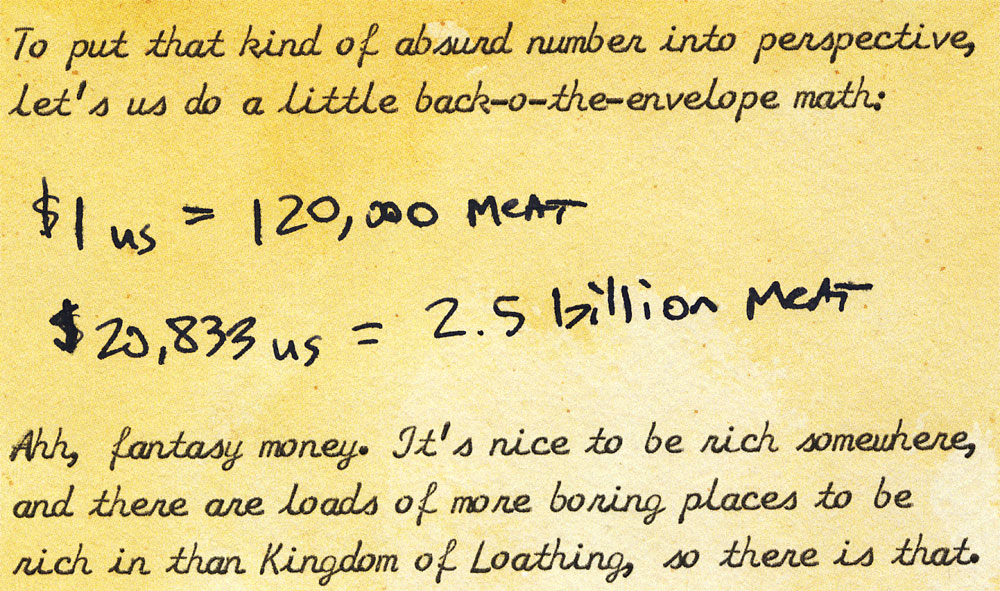 To put that kind of absurd number into perspective,
let's us do a little back-o-the-envelope math:
$1 us = 120,000 MEAT
$20,833 us = 2.5 billion MEAT
Ahh, fantasy money. It's nice to be rich somewhere,
and there are loads of more boring places to be
rich in than Kingdom of Loathing, so there is that.